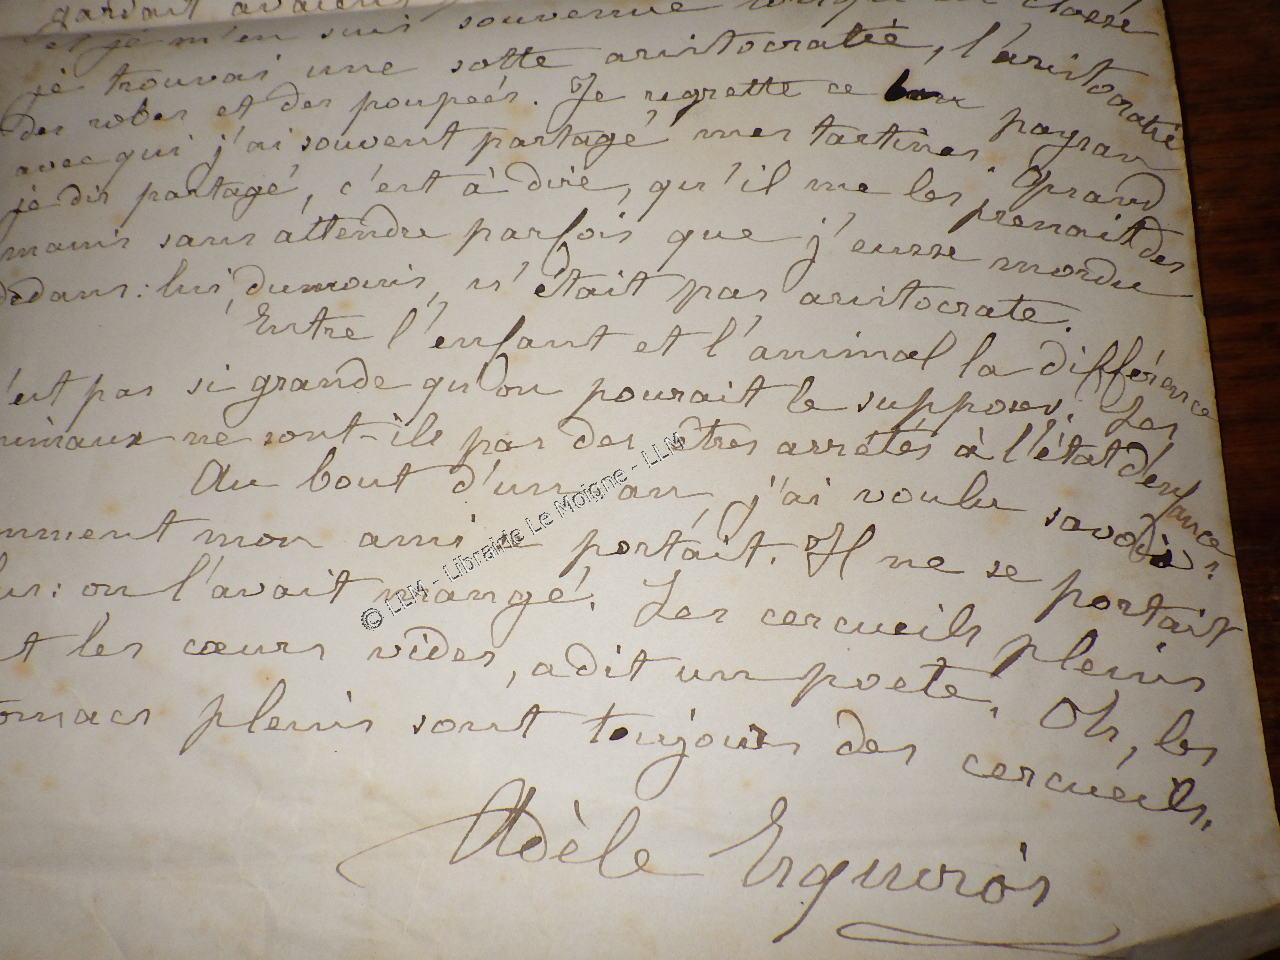 gardait avaient
et je m'en suis souvenue lorsqu'en classe
je trouvai une sotte aristocratie, l'aristocratie
des robes et des poupées. Je regrette ce bon paysan
avec qui j'ai souvent partagé mes tartines. Quand
je dis partagé, c'est à dire, qu'il me les prenait des
mains sans attendre parfois que j'eusse mordu
dedans: lui, du moins, n'était pas aristocrate.
Entre l'enfant et l'animal la différence
n'est pas si grande qu'on pourait le supposer. Les
animaux ne sont-ils pas des êtres arrêtés à l'état d'enfance?
Au bout d'un an, j'ai voulu savoir
comment mon ami se portait. Il ne se portait
plus: on l'avait mangé. Les cercueils pleins
font les cœurs vides, a dit un poete. Oh, les
estomacs pleins sont toujours des cercueils.
Adèle Esquiros
© LLM - Librairie Le Moigne - LLM